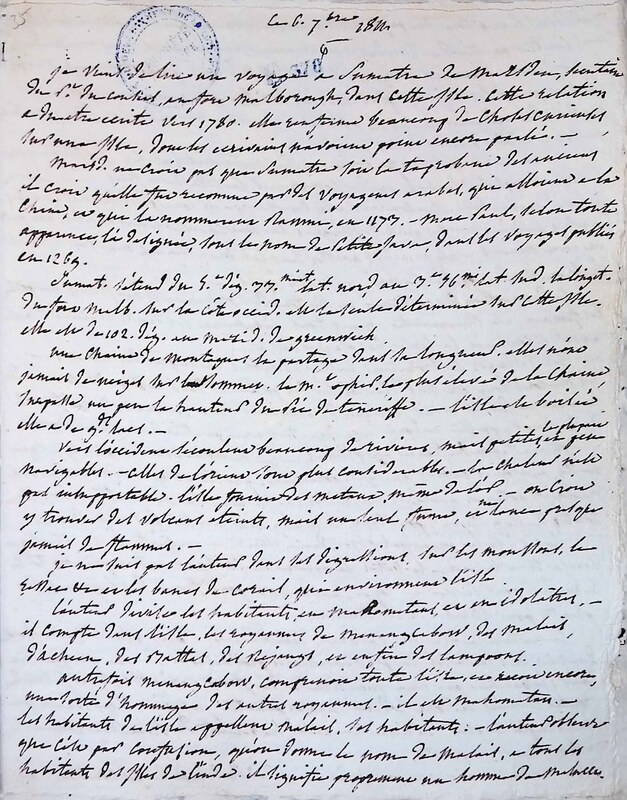 75
ce 6. 7.bre 1811
je viens de lire un voyage a Sumatra de Marsden, secretaire
du Pt. du conseil, au fort malborough, dans cette isle. cette relation
a du etre ecrite vers 1780. elle renferme beaucoup de choses curieuses
sur une isle, dont les ecrivains n'avoient point encore parlé. —
Marsd. ne croit pas que Sumatra soit la taprobane des anciens
il croit qu'elle fut reconnue par des voyageurs arabes, qui alloient a la
Chine, et que la nommerent Ramni en 1173 — Marc Paul, selon toute
apparence, l'a designée, sous le nom de petite Java, dans les voyages publiés
en 1269.
Sumat. s'étend du 5.e dég. 33 minut. lat. nord au 5.e 56 m. lat. sud. la longit.
du fort Malb. sur la côte occid. est la seule determinée sur cette isle.
elle est de 102. dég. du merid. de greenwich.
une chaine de montagnes la partage dans sa longueur. elles n'ont
jamais de neiges sur leur sommet. le mt. ophir, le plus élevé de la chaine
surpasse un peu la hauteur du Pic de teneriffe. — l'isle est boisée
elle a de gds. lacs. —
Vers l'occident s'écoulent beaucoup de rivieres, mais petites, et peu
la plupart
navigables. — celles de l'orient sont plus considérables. — la chaleur n'est
pas insupportable. l'isle fournit des metaux, même de l'or. — on croit
y trouver des volcans eteints, mais un seul fume, et ne lance presque
jamais de flammes. —
je ne suis pas l'auteur dans ses digressions, sur les moussons, le
et les bancs de corail, qui environnent l'isle
l'auteur divise les habitants, en mahometans, et en idolâtres. —
il compte dans l'isle, les royaumes de menangcabow, des malais,
d'acheen, des Battas, des Rejangs, et enfin des lampoons.
autrefois menangcabow, comprenoit toute l'isle, et recoit encore,
une sorte d'hommage des autres royaumes. — il est mahometan. —
les habitants de l'isle appellent malais, ses habitants: — l'auteur observe
que c'est par confusion, qu'on donne le nom de malais, a tous les
habitants des isles de l'inde. il signifie proprement un homme de malacca